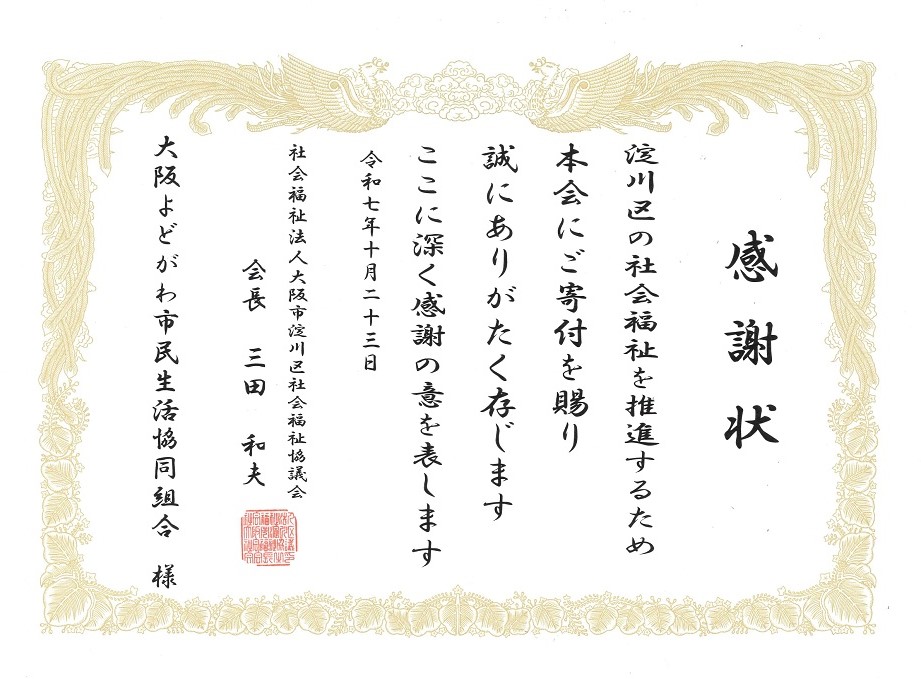 感謝状
淀川区の社会福祉を推進するため
本会にご寄付を賜り
誠にありがたく存じます
ここに深く感謝の意を表します
令和七年十月二十三日
社会福祉法人大阪市淀川区社会福祉協議会
会長 三田 和夫
大阪よどがわ市民生活協同組合 様